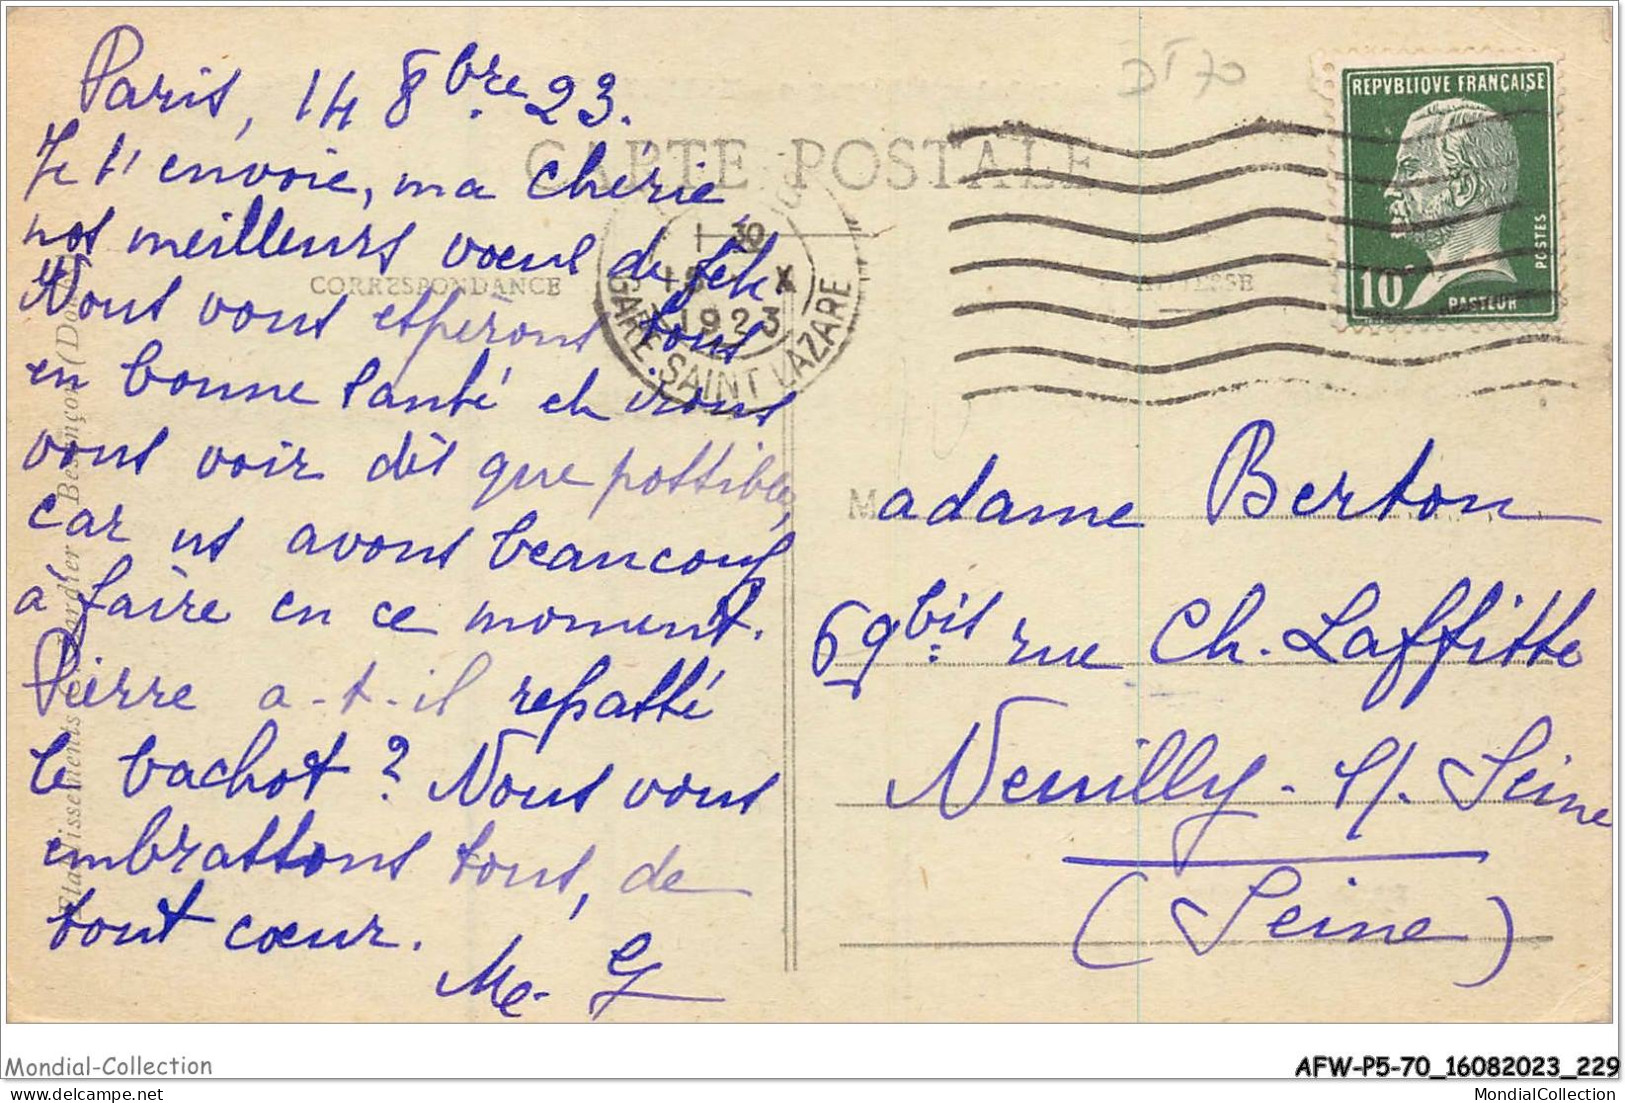 Paris, 14 8bre 23.
Je t'envoie, ma chérie
nos meilleurs vœux de fête
Nous vous espérons tous
en bonne santé et irons
vous voir dès que possible,
car ns avons beaucoup
à faire en ce moment.
Pierre a-t-il repassé
le bachot? Nous vous
embrassons tous, de
tout cœur.
CARTE POSTALE
CORRESPONDANCE
ADRESSE
1 30
15 X
1923
GARE SAINT LAZARE
D 70
REPVBLIQVE FRANÇAISE
POSTES
10c
PASTEUR
Madame Berton
69bis rue Ch. Laffitte
Neuilly-s/-Seine
(Seine)
Etablissements Besançon (Doubs)
Mondial-Collection
AFW-P5-70_16082023_229
delcampe.net
MondialCollection